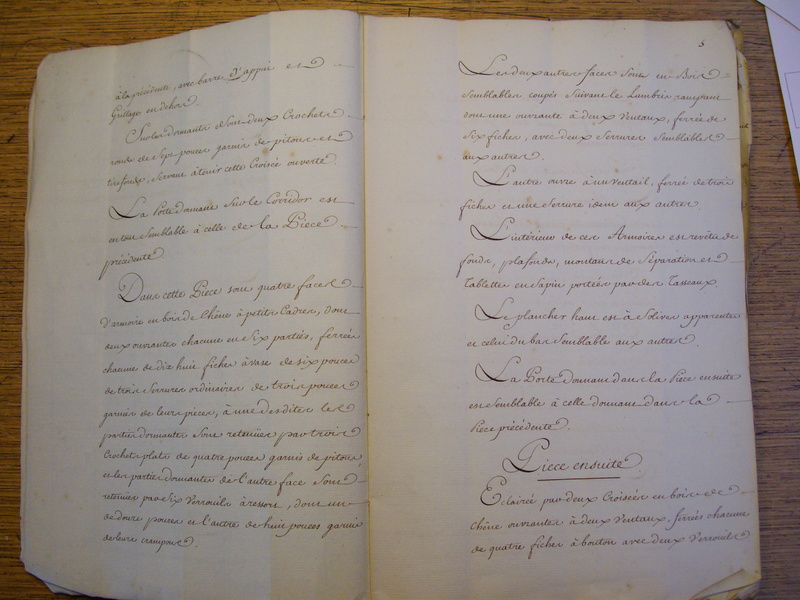 à la précédente, avec barre d'appui et
Grillage en dehors.
Sur les dormants sont deux Crochets
ronds de sept pouces garnis de pitons et
tirefonds, servant à tenir cette Croisée ouverte.
La Porte donnant sur le Corridor est
en tout semblable à celle de la Piece
précédente
Dans cette Piece sont quatre faces
d'armoire en bois de Chêne à petits Cadres, dont
deux ouvrantes chacune en six parties, ferrées
chacune de dix huit fiches à vase de six pouces
de trois serrures ordinaires de trois pouces
garnies de leurs pieces, à une desdites les
parties dormantes sont retenües par trois
Crochets plats de quatre pouces garnis de pitons,
et les parties dormantes de l'autre face sont
retenües par six Verrouils à ressort, dont un
de douze pouces et l'autre de huit pouces garnis
de leurs crampons.
5
Les deux autres faces sont en Bois
semblables coupés suivant le Lambris rampant
dont une ouvrante à deux Venteaux, ferrée de
six fiches, avec deux Serrures Semblables
aux autres.
L'autre ouvre à un Ventail, ferrée de trois
fiches et une Serrure idem aux autres
L'intérieur de ces Armoires est revêtu de
fonds, plafonds, montans de Séparation et
Tablettes en Sapin portées par des Tasseaux.
Le plancher haut est à Solives apparentes
et celui du bas semblable aux autres.
La Porte donnant dans la Piece ensuite
est semblable à celle donnant dans la
Piece précédente.
Piece ensuite
Eclairée par deux Croisées en bois de
Chêne ouvrantes à deux Venteaux, ferrées chacune
de quatre fiches à bouton avec deux Verrouils